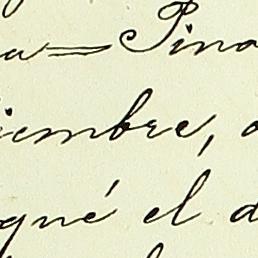 a = Pina
iembre, a
qué el d